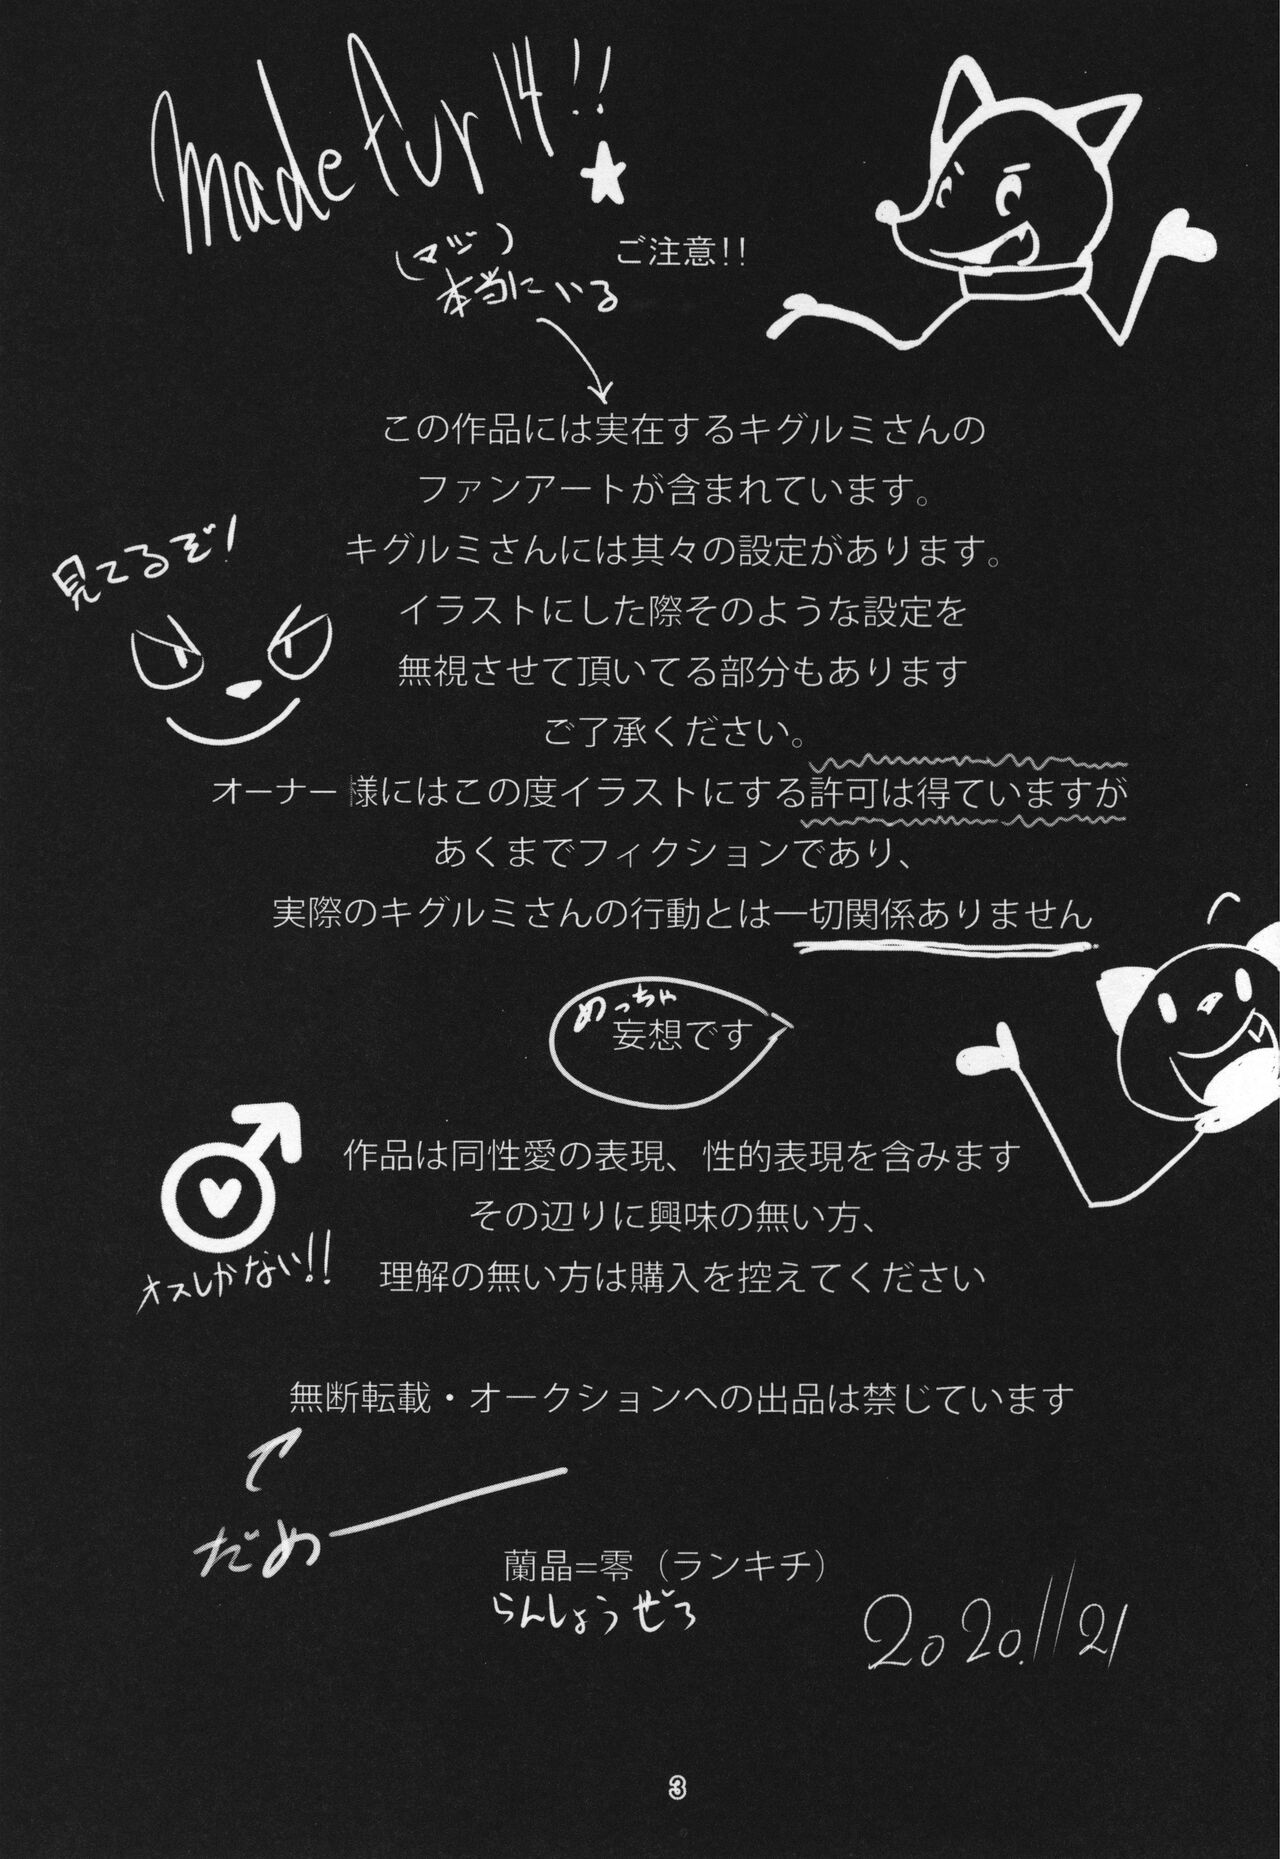 made fur 14!!
(マジ)
本当にいる
ご注意!!
この作品には実在するキグルミさんの
ファンアートが含まれています。
キグルミさんには其々の設定があります。
イラストにした際そのような設定を
無視させて頂いてる部分もあります
ご了承ください。
見てるぞ!
オーナー様にはこの度イラストにする許可は得ていますが
あくまでフィクションであり、
実際のキグルミさんの行動とは一切関係ありません
めっちゃ
妄想です
作品は同性愛の表現、性的表現を含みます
その辺りに興味の無い方、
理解の無い方は購入を控えてください
オスしかない!!
無断転載・オークションへの出品は禁じています
だめー
蘭晶=零（ランキチ）
らんしょうぜろ
2020.11/21
3